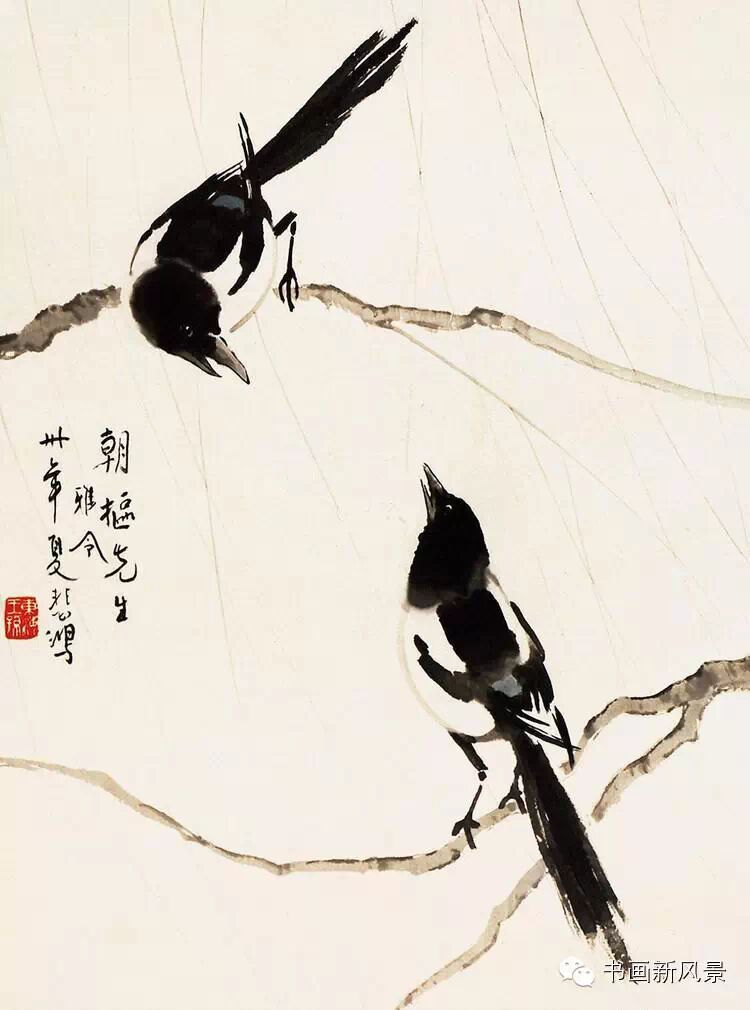 朝枢先生
雅令
卅年夏悲鸿
東海王孫
书画新风景